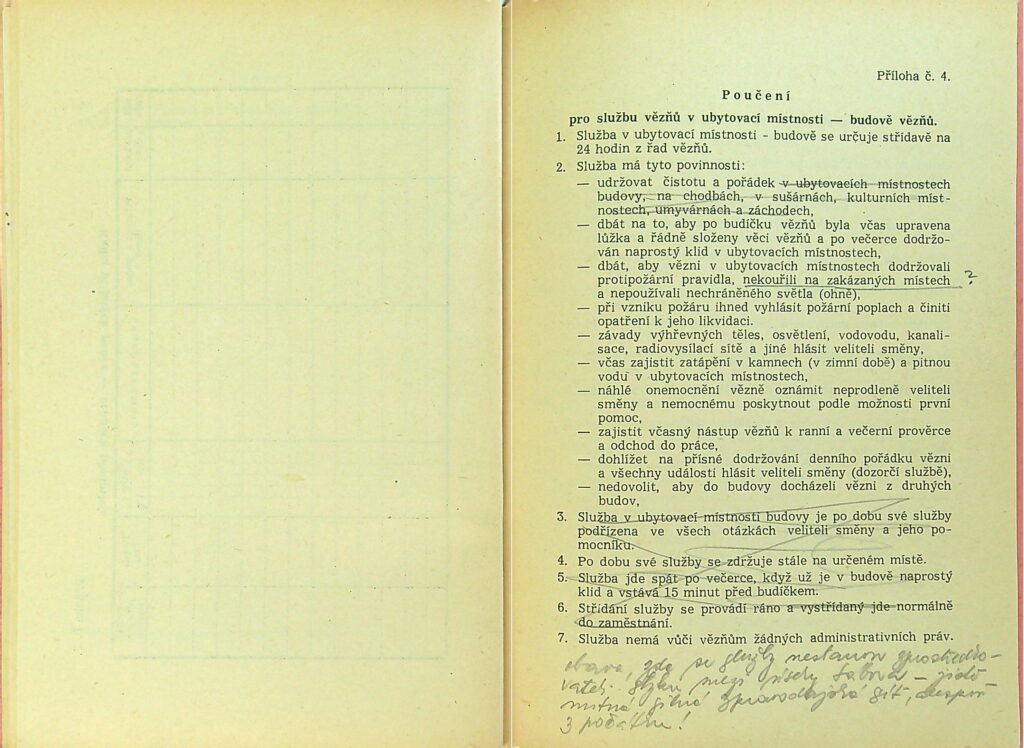 Příloha č. 4.
Poučení
pro službu vězňů v ubytovací místnosti — budově vězňů.
1. Služba v ubytovací místnosti - budově se určuje střídavě na
24 hodin z řad vězňů.
2. Služba má tyto povinnosti:
— udržovat čistotu a pořádek v ubytovacích místnostech
budovy, na chodbách, v sušárnách, kulturních míst-
nostech, umyvárnách a záchodech,
— dbát na to, aby po budíčku vězňů byla včas upravena
lůžka a řádně složeny věci vězňů a po večerce dodržo-
ván naprostý klid v ubytovacích místnostech,
— dbát, aby vězni v ubytovacích místnostech dodržovali
protipožární pravidla, nekouřili na zakázaných místech ?
a nepoužívali nechráněného světla (ohně),
— při vzniku požáru ihned vyhlásit požární poplach a činiti
opatření k jeho likvidaci.
— závady výhřevných těles, osvětlení, vodovodu, kanali-
sace, radiovysílací sítě a jiné hlásit veliteli směny,
— včas zajistit zatápění v kamnech (v zimní době) a pitnou
vodu v ubytovacích místnostech,
— náhlé onemocnění vězně oznámit neprodleně veliteli
směny a nemocnému poskytnout podle možnosti první
pomoc,
— zajistit včasný nástup vězňů k ranní a večerní prověrce
a odchod do práce,
— dohlížet na přísné dodržování denního pořádku vězni
a všechny události hlásit veliteli směny (dozorčí službě),
— nedovolit, aby do budovy docházeli vězni z druhých
budov,
3. Služba v ubytovací místnosti budovy je po dobu své služby
podřízena ve všech otázkách veliteli směny a jeho po-
mocníku.
4. Po dobu své služby se zdržuje stále na určeném místě.
5. Služba jde spát po večerce, když už je v budově naprostý
klid a vstává 15 minut před budíčkem.
6. Střídání služby se provádí ráno a vystřídaný jde normálně
do zaměstnání.
7. Služba nemá vůči vězňům žádných administrativních práv.
obava, zda se služby nestanou zprostředko-
vateli styku mezi
nutná silná zpravodajská síť,
z počátku!